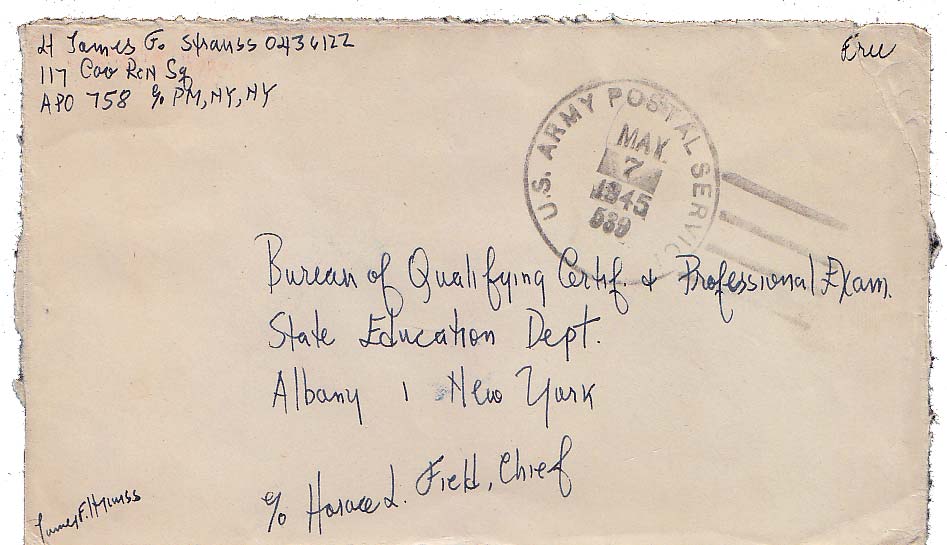 Lt James F. Strauss 0436122
117 Cav Rcn Sq
APO 758 c/o PM, NY, NY
Free
U.S. ARMY POSTAL SERVICE
MAY
7
1945
539
Bureau of Qualifying Certif. + Professional Exam.
State Education Dept.
Albany 1 New York
c/o Horace L. Field, Chief
James F. Strauss